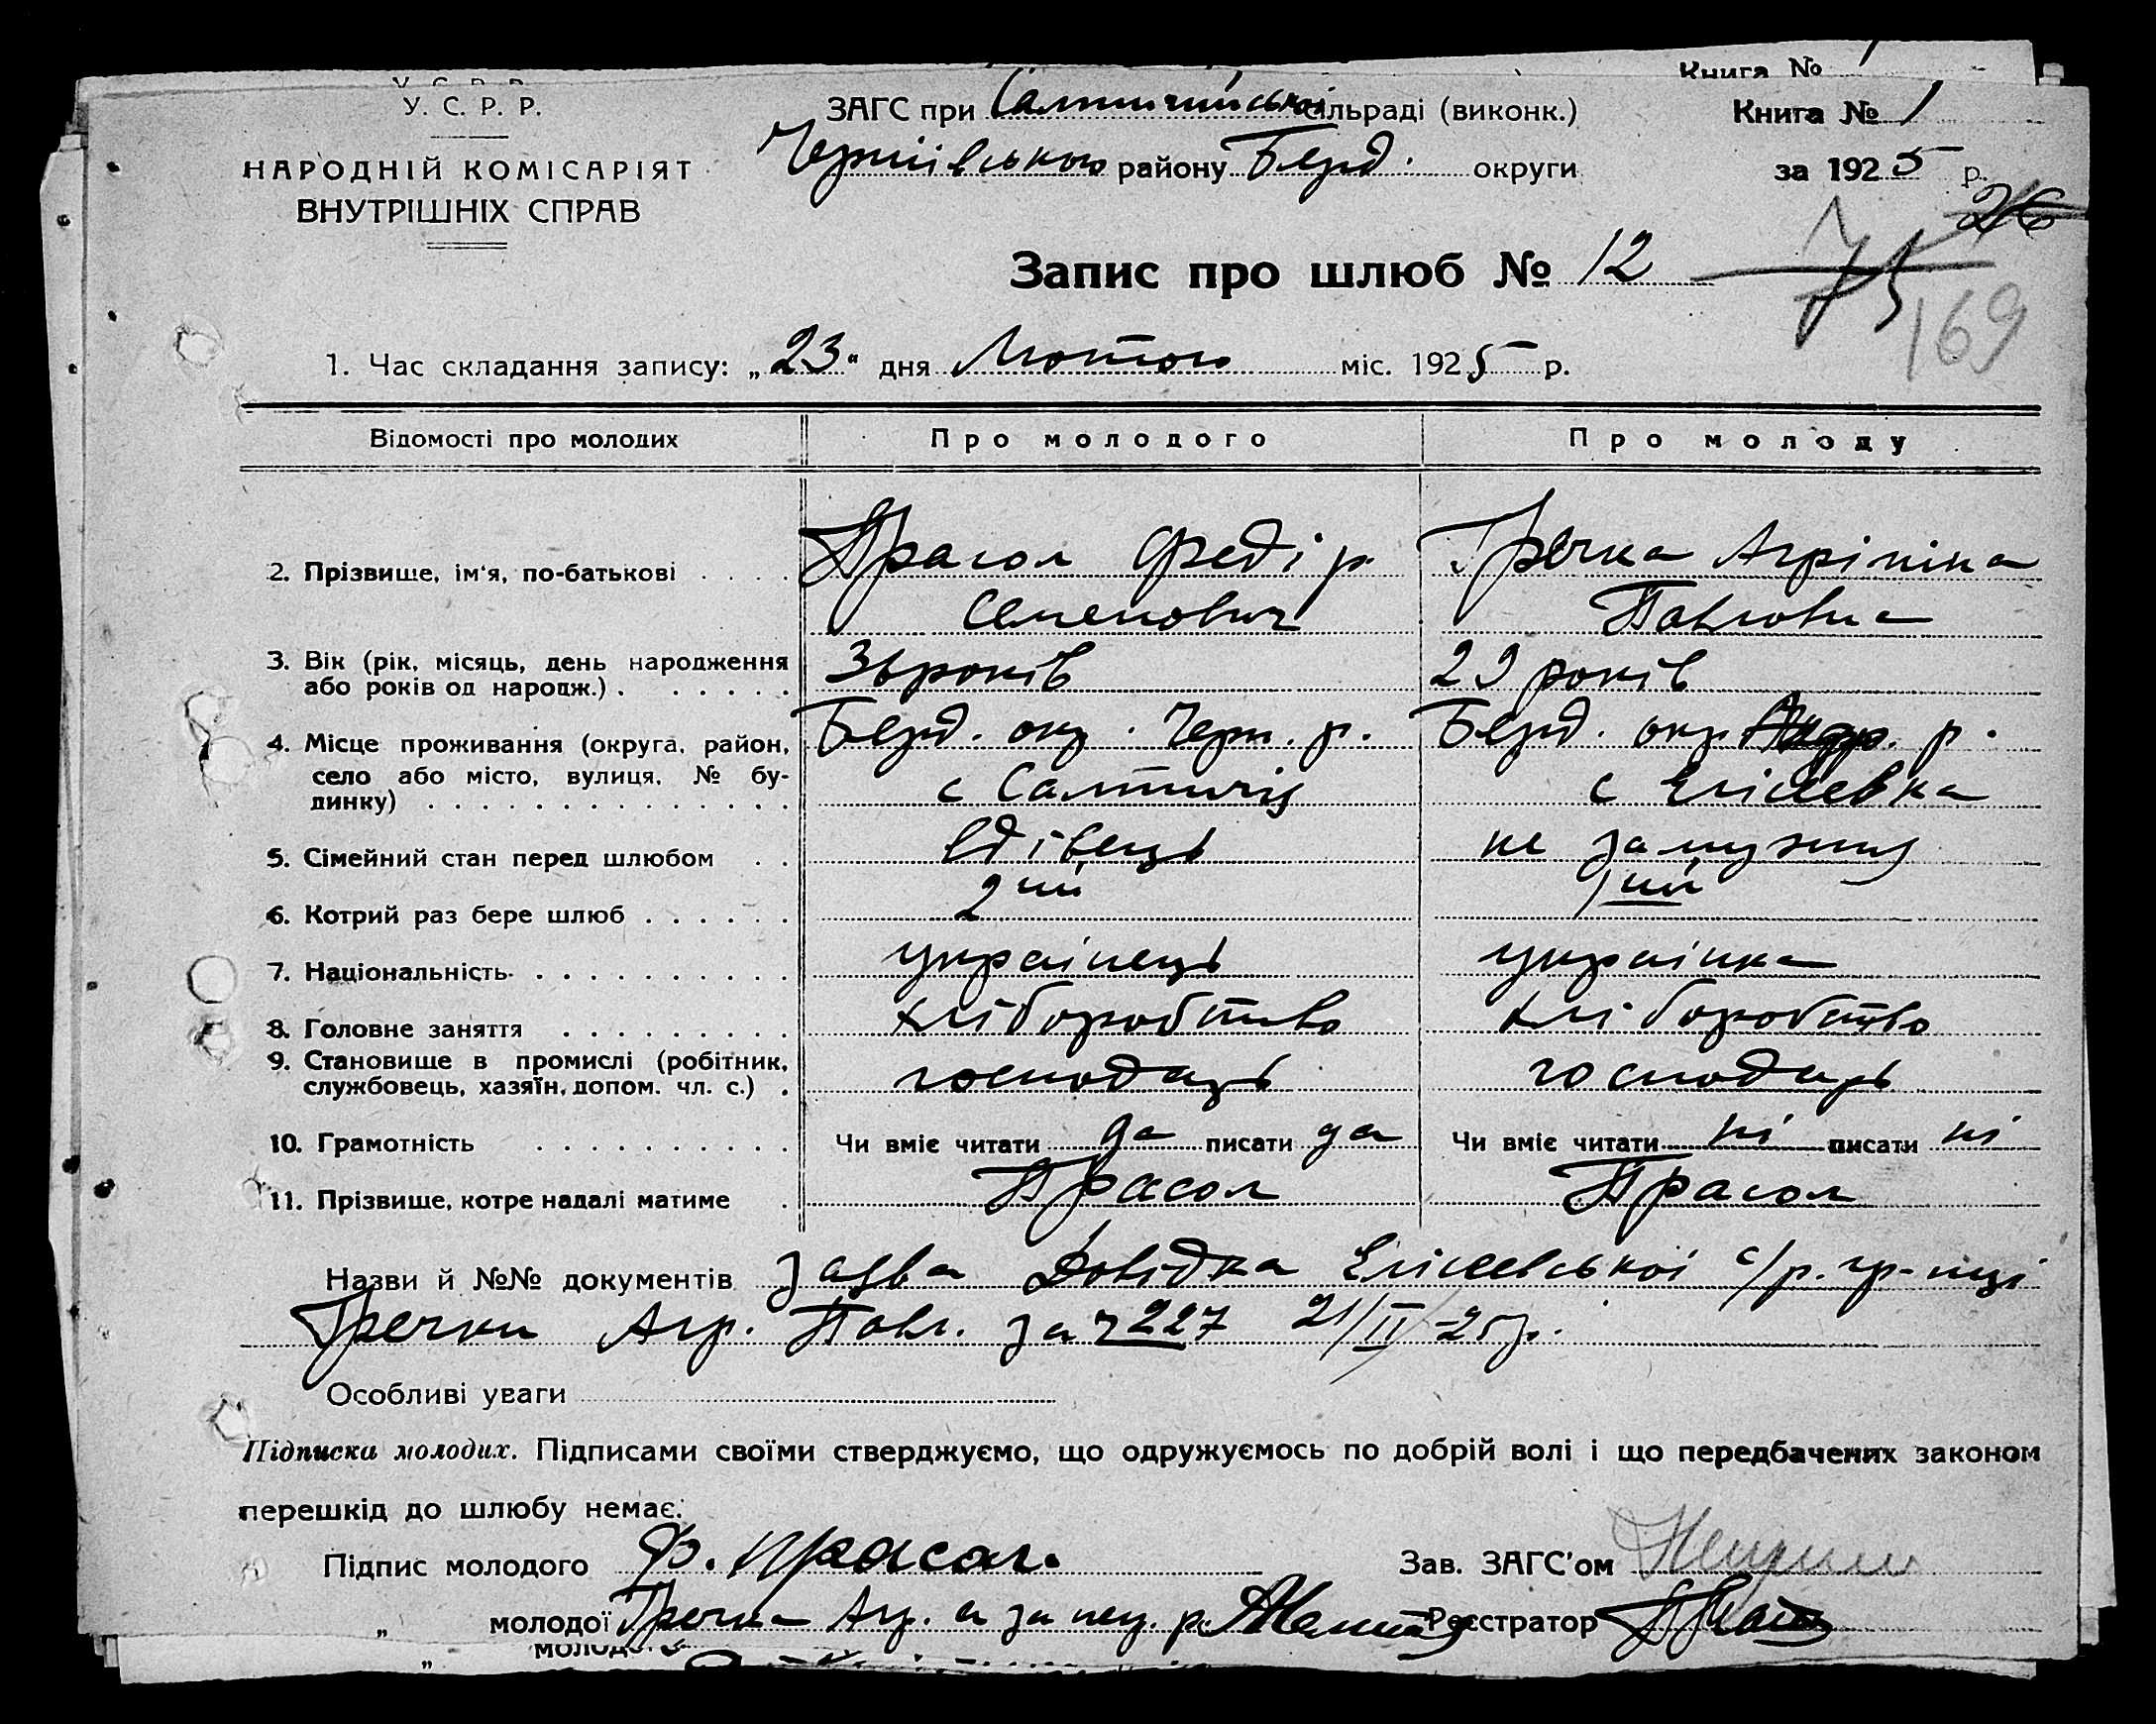 Книга №
У. С. Р. Р.
ЗАГС при Салтичийській сільраді (виконк.)
Книга № 1
НАРОДНІЙ КОМІСАРІЯТ
ВНУТРІШНІХ СПРАВ
району Берд. округи
за 1925 р.
26
Запис про шлюб № 12
75
169
1. Час складання запису: „23“ дня Лютого міс. 1925 р.
Відомості про молодих
Про молодого
Про молоду
2. Прізвище, ім'я, по-батькові . . . .
Прасол Федір
Семенович
Гречка Агріпіна
Павловна
3. Вік (рік, місяць, день народження
або років од народж.) . . . . . .
36 років
29 років
4. Місце проживання (округа, район,
село або місто, вулиця, № бу-
динку) . . . . . . . . . . . . . .
Берд. окр. Черн. р.
с Салтичія
Берд. окр. р.
с Елісеевка
5. Сімейний стан перед шлюбом . .
вдівець
не замужня
6. Котрий раз бере шлюб . . . . . .
2 ий
1 ий
7. Національність . . . . . . . . . .
українець
українка
8. Головне заняття . . . . . . . . .
хліборобство
хліборобство
9. Становище в промислі (робітник,
службовець, хазяїн, допом. чл. с.) .
господарь
господарь
10. Грамотність . . . . . . . . . .
Чи вміє читати да писати да
Чи вміє читати ні писати ні
11. Прізвище, котре надалі матиме .
Прасол
Прасол
Назви й №№ документів заява Довідка Елісеевської с/р. гр-нці
Гречки Агр. Павл. за ч 227 21/II-25 р.
Особливі уваги
Підписка молодих. Підписами своїми стверджуємо, що одружуємось по добрій волі і що передбачених законом
перешкід до шлюбу немає.
Підпис молодого Ф. Прасол.
Зав. ЗАГС'ом
„ молодої Гречка Агр. а за неп. р.
Реєстратор
„ молодо